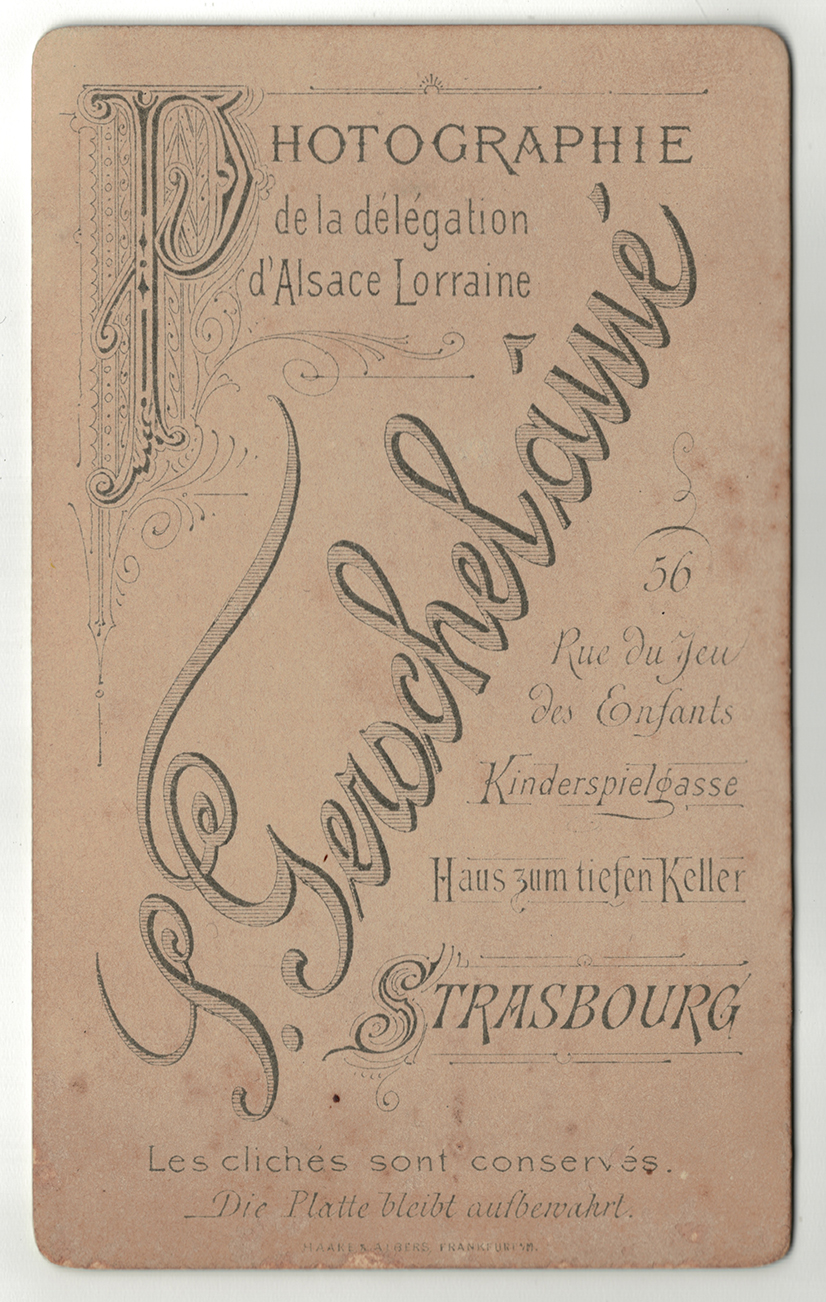 PHOTOGRAPHIE
de la délégation
d'Alsace Lorraine
S. Gerschel aîné
56
Rue du Jeu
des Enfants
Kinderspielgasse
Haus zum tiefen Keller
STRASBOURG
Les clichés sont conservés.
Die Platte bleibt aufbewahrt.
HAAKE & ALBERS, FRANKFURT A/M.